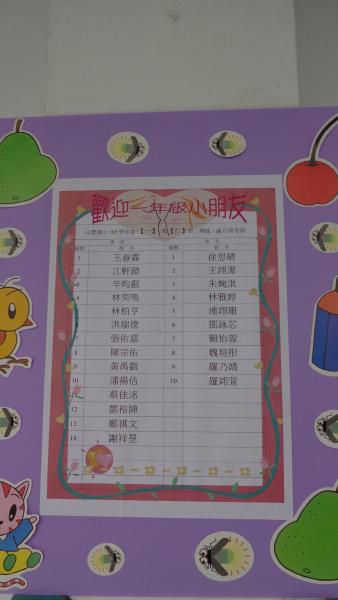 歡迎一年級小朋友
男生 女生
座號 姓名 座號 姓名
1 王春霖 1 徐思晴
2 江軒緒 2 王翊潔
3 辛昀叡 3 朱婉淇
4 林奕鳴 4 林雅婷
5 林柏亨 5 連翊珊
6 洪瑞德 6 鄧詠芯
7 張佑嘉 7 賴怡蓉
8 陳宗佑 8 魏瑄彤
9 黃禹叡 9 羅乃靖
10 潘揚佶 10 羅翊萱
11 蔡佳洺
12 鄧裕紳
13 鄭祺文
14 謝祥昱